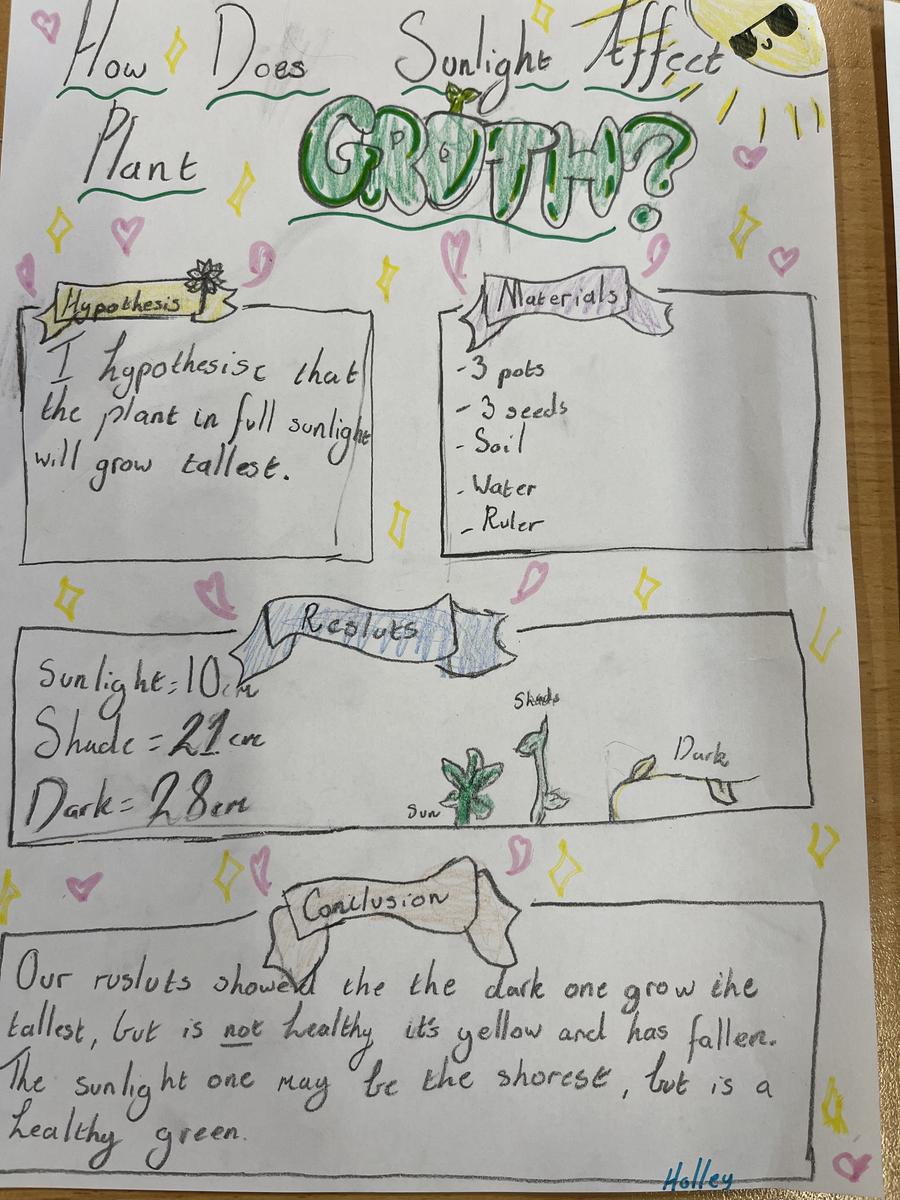 How Does Sunlight Affect
Plant GROTH?
Hypothesis
I hypothesise that
the plant in full sunlight
will grow tallest.
Materials
-3 pots
- 3 seeds
- Soil
- Water
- Ruler
Resluts
Sunlight = 10cm
Shade = 21cm
Dark = 28cm
Sun
Shade
Dark
Conclusion
Our rusluts showed the the dark one grow the
tallest, but is not healthy it's yellow and has fallen.
The sunlight one may be the shorest, but is a
healthy green.
Holley